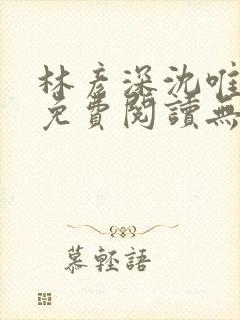 林彥深沈唯
免費閱讀無
慕輕語